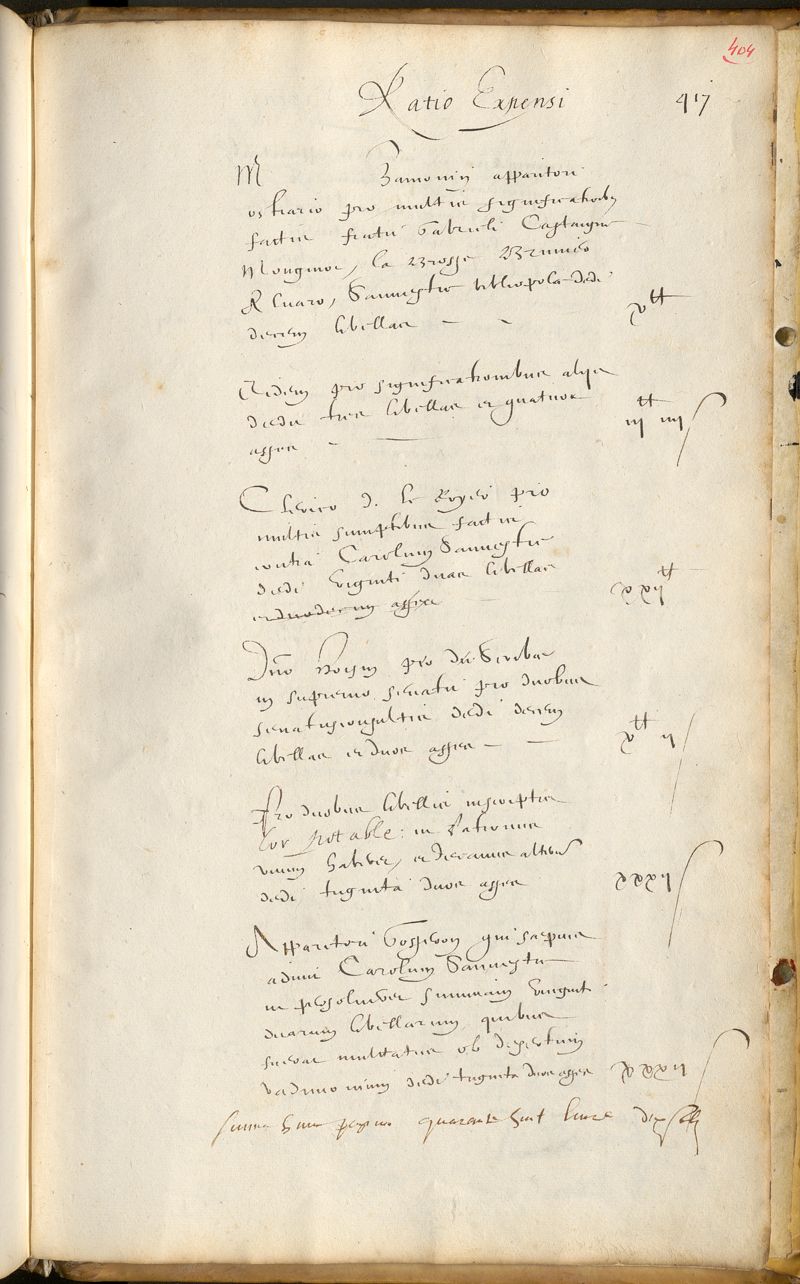 404
Ratio Expensi 417
M Zamonin apparitori
ostiario pro multis significationibus
factis fratri Gabrieli Castaigne
Monginot, la Brosse Brunies
Alvaro, Sannestre bibliopolae dedi
decem libellas — — x tt
Eidem pro significationibus aliis
dedi tres libellas et quatuor iij tt iiij s
asses — —
Clerico d. le Royer pro
multis sumptibus factis
contra Carolum Sannestre
dedi viginti duas libellas xxij tt
et duodecim asses
Dno Voisin pro dni Scribae
in supremo senatu pro duobus
senatusconsultis dedi decem
libellas et duos asses — — x tt ij s
Pro duobus libellis inscriptis
Cor notable: in Rationus
unum habes, et decanus alterum
dedi triginta duos asses xxxij s
Apparitori Gosseron qui saepius
adivit Carolum Sannestre
ut persolveret summam viginti
duarum libellarum, quibus
fuerat multatus ob desertum
vadimonium dedi triginta duos asses xxxij s
Summa huius paginae quarante huit livres dix solz